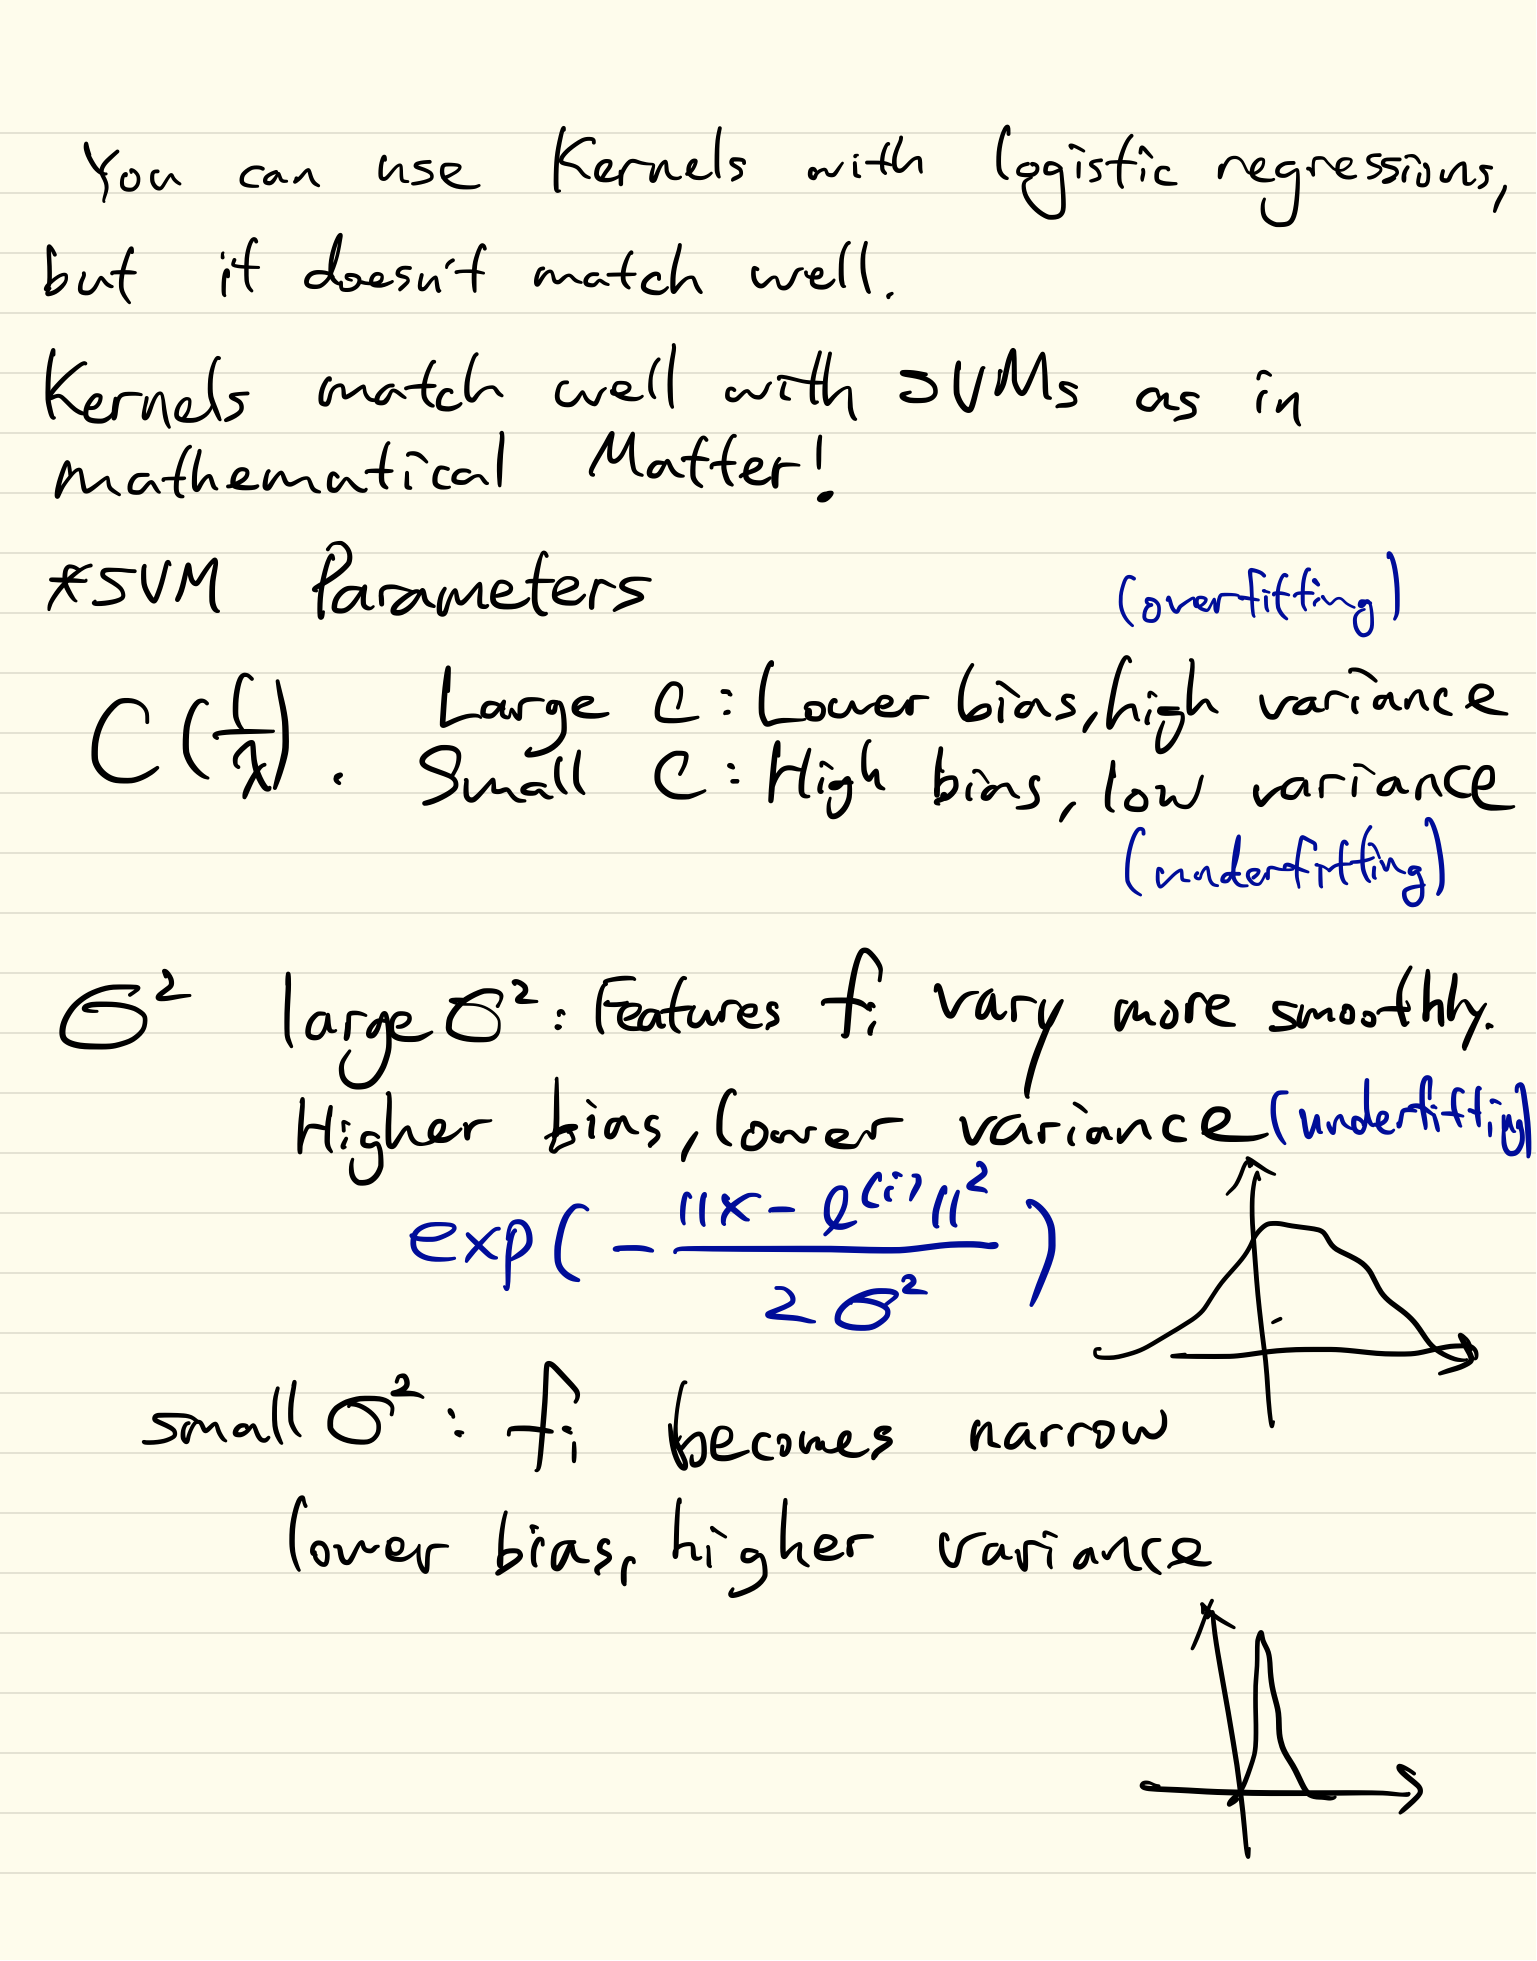 You can use Kernels with logistic regressions,
but it doesn't match well.
Kernels match well with SVMs as in
mathematical Matter!
*SVM Parameters
(overfitting)
C (1/λ). Large C: Lower bias, high variance
Small C: High bias, low variance
(underfitting)
σ² large σ²: Features fi vary more smoothly.
Higher bias, lower variance (underfitting)
exp(- ||x - l⁽ⁱ⁾||² / 2σ²)
small σ²: fi becomes narrow
lower bias, higher variance